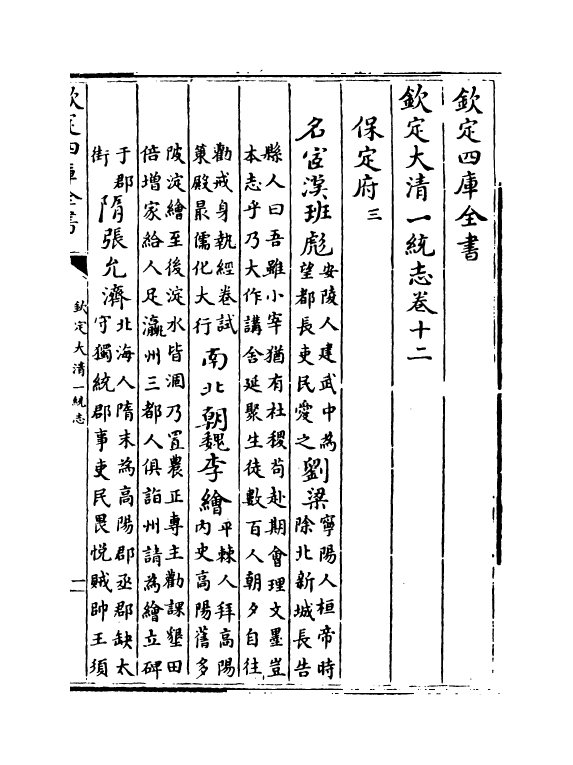 欽定四庫全書
欽定大清一統志卷十二
保定府三
名宦漢班彪安陵人建武中為
望都長吏民愛之劉梁寧陽人桓帝時
除北新城長告
縣人曰吾雖小宰猶有社稷苟赴期會理文墨豈
本志乎乃大作講舍延聚生徒數百人朝夕自往
勸戒身執經卷試
策殿最儒化大行南北朝魏李繪平棘人拜高陽
内史高陽舊多
陂淀繪至後淀水皆涸乃置農正專主勸課墾田
倍增家給人足瀛州三都人俱詣州請為繪立碑
于郡
街隋張允濟北海人隋末為高陽郡丞郡缺太
守獨統郡事吏民畏悅賊帥王須
欽定四庫全書
欽定大清一統志